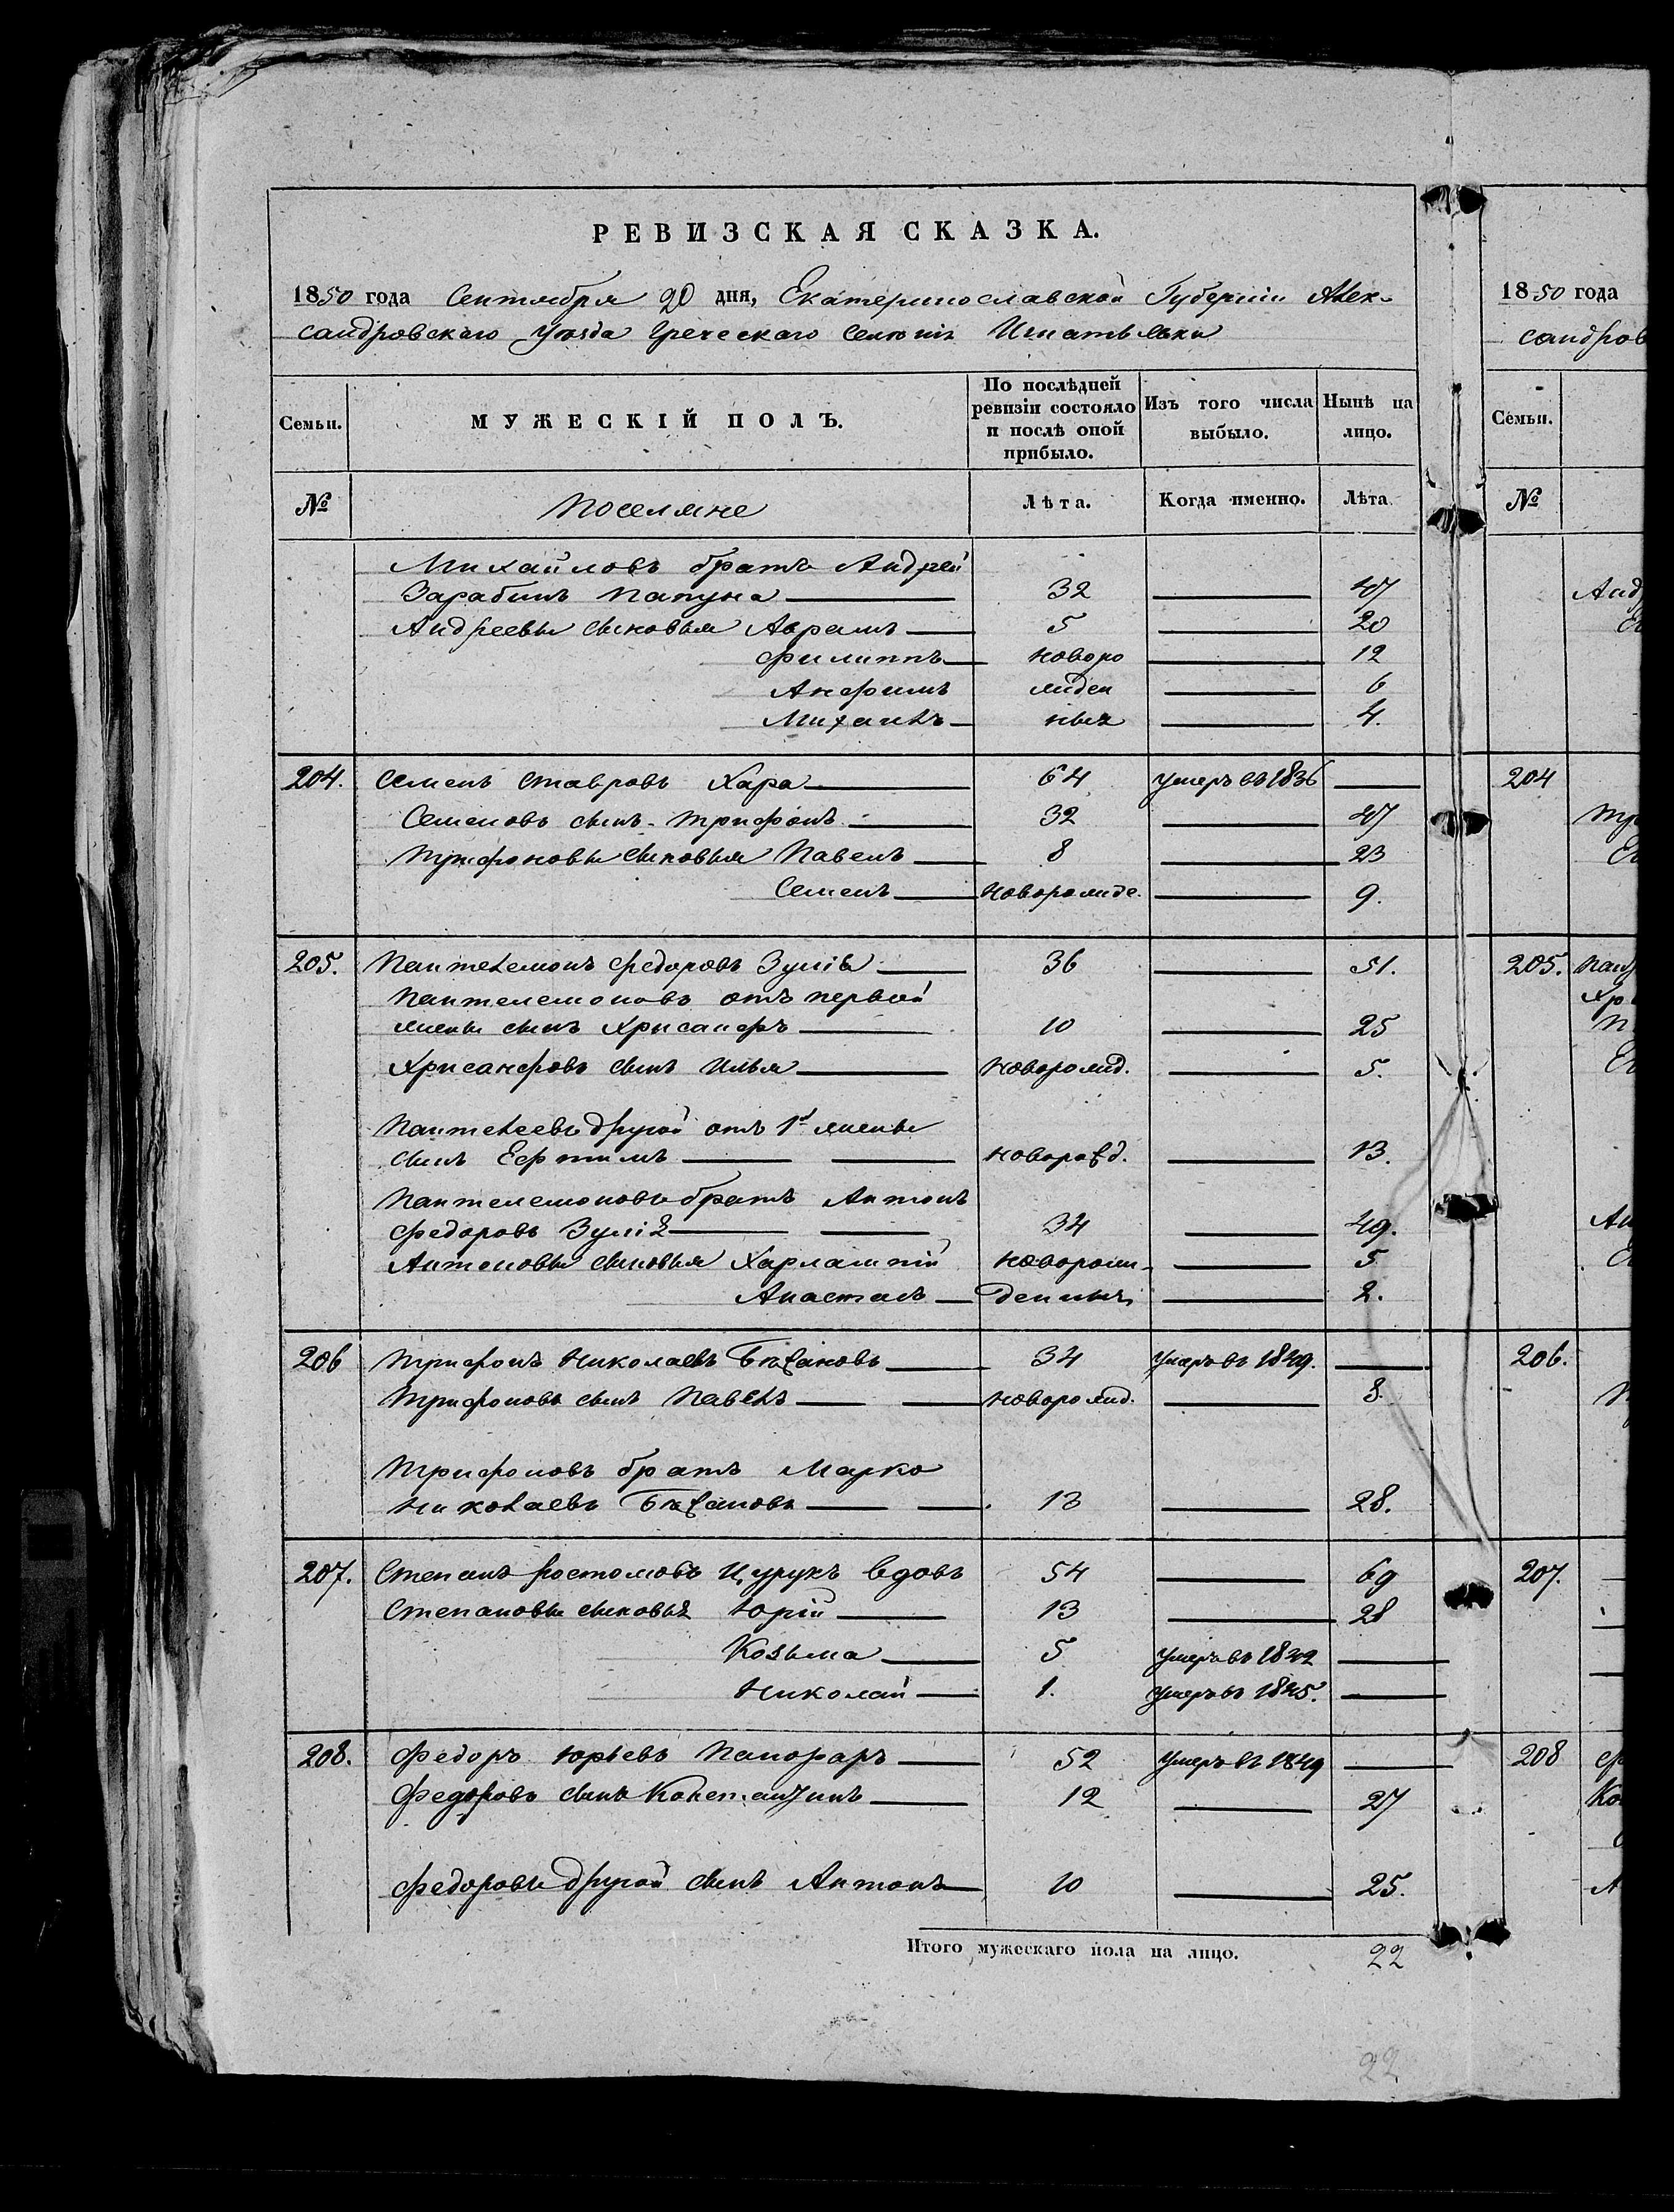 РЕВИЗСКАЯ СКАЗКА.
1850 года Сентября 20 дня, Екатеринославской Губернiи Алек-
сандровскаго уѣзда Греческаго селенiя Игнатьевки
Семьи. МУЖЕСКIЙ ПОЛЪ. По послѣдней ревизiи состояло и послѣ оной прибыло. Изъ того числа выбыло. Нынѣ на лицо.
№ Поселяне Лѣта. Когда именно. Лѣта
Михайловъ братъ Андрей
Зарабинъ Папуна 32 47
Андреевы сыновья Аврамъ 5 20
Филиппъ новоро 12
Анфимъ жден 6
Михаилъ ных 4.
204. Семенъ Ставровъ Хара 64 умеръ въ 1836
Семеновъ сынъ Трифонъ 32 47
Трифоновы сыновья Павелъ 8 23
Семенъ новорожде. 9.
205. Пантелемонъ Федоровъ 36 51.
Пантелемоновъ отъ первой
жены сынъ Хрисанфъ 10 25
Хрисанфовъ сынъ Илья новорожд. 5.
Пантелеевъ другой отъ 1й жены
сынъ Ефтимъ новорожд. 13.
Пантелемоновъ братъ Антонъ
Федоровъ 34 49.
Антоновы сыновья Харлампiй новорож- 5
Анастасъ денныъ 2.
206 Трифонъ Николаевъ 34 умеръ въ 1849.
Трифоновъ сынъ Павелъ новорожд. 8.
Трифоновъ братъ Марко
Николаевъ 13 28.
207. Степанъ Ростомовъ Цурукъ вдовъ 54 69
Степановы сыновья Юрiй 13 28
Козьма 5 умеръ въ 1842
Николай 1. умеръ въ 1845.
208. Федоръ Юрьевъ Папораръ 52 умеръ въ 1849
Федоровъ сынъ Константинъ 12 27
Федоровъ другой сынъ Антонъ 10 25.
Итого мужескаго пола на лицо. 22
22
1850 года
сандров
Семьи.
№
204
205.
206.
207.
208